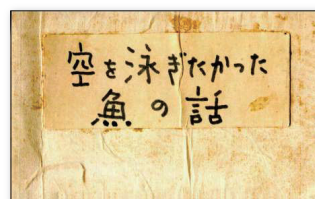 空を泳ぎたかった
魚の話